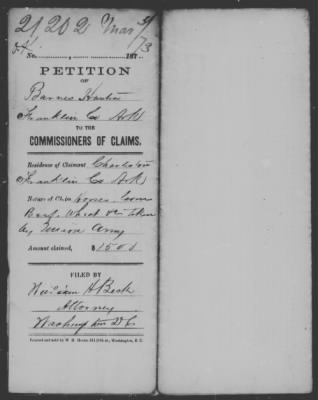 21202 Mar 3/73
No. 187
PETITION
OF
Barnes Hunter
Franklin Co Ark
TO THE
COMMISSIONERS OF CLAIMS.
Residence of Claimant Charleston
Franklin Co Ark
Nature of Claim Horses Corn
Beef, Wheat &c taken
by Union Army
Amount claimed, $1500
FILED BY
William H Beck
Attorney
Washington D C